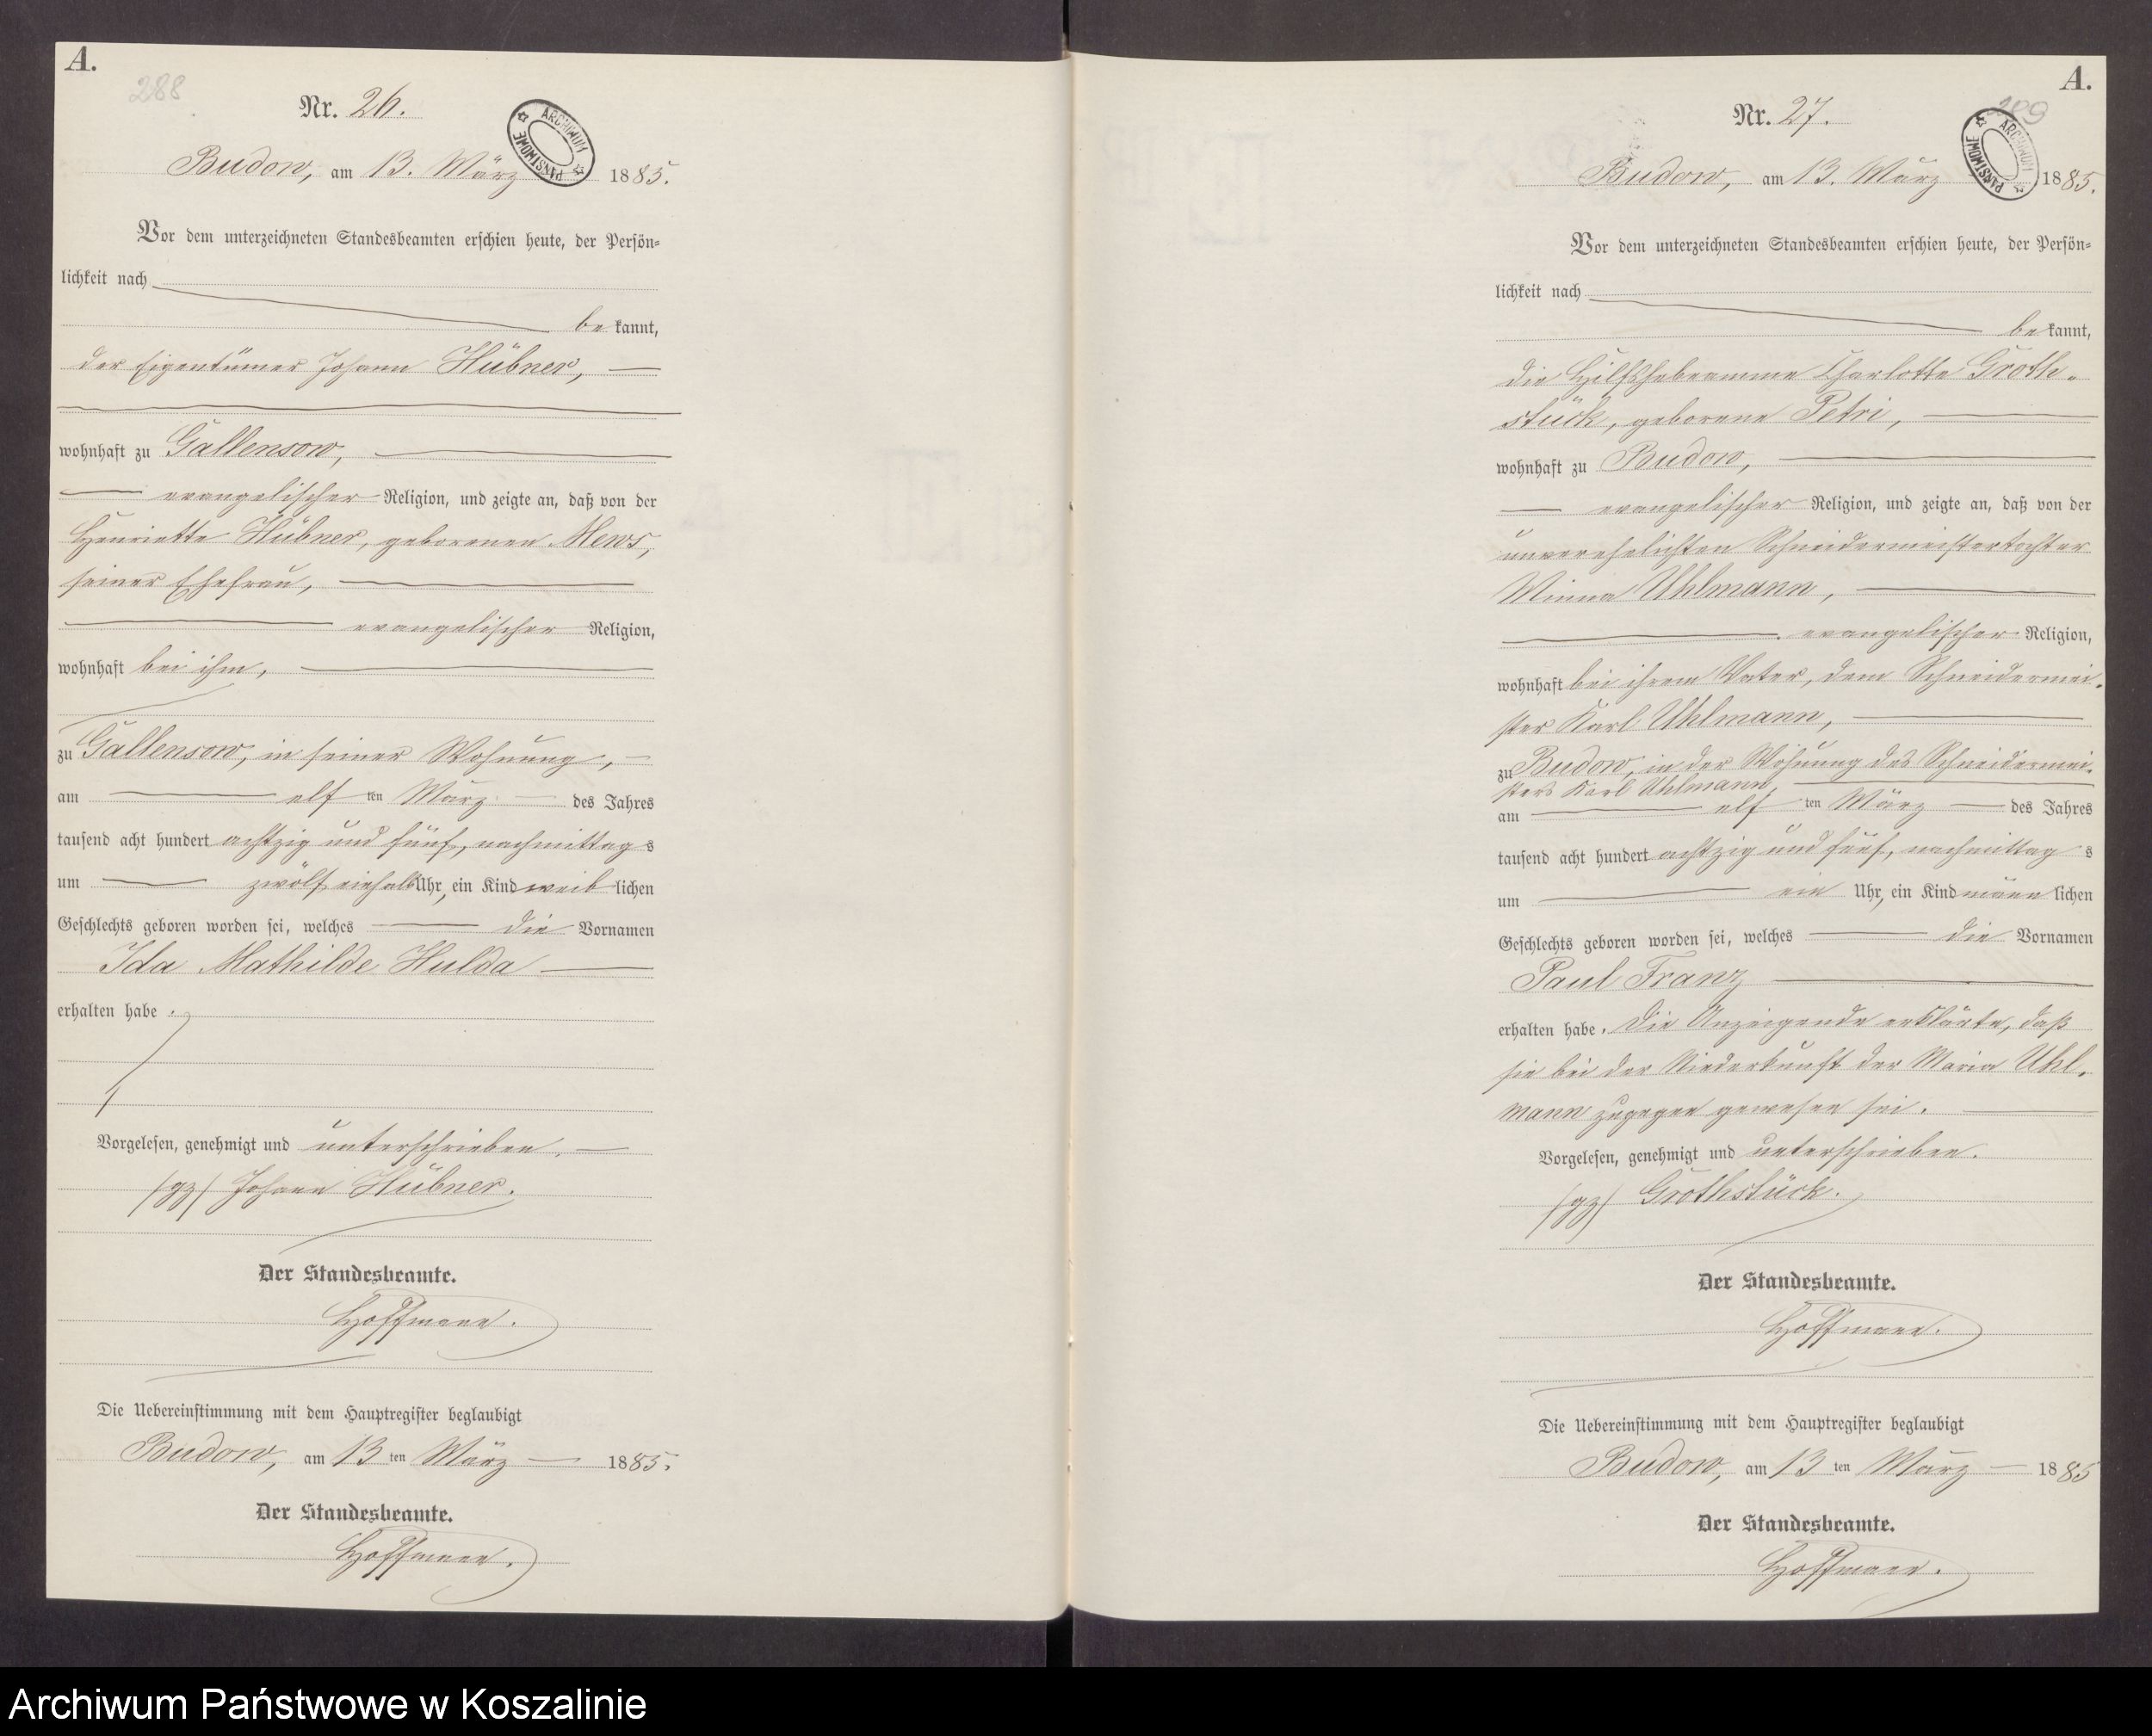 A.
288
Nr. 26.
ARCHIWUM PAŃSTWOWE
Budow, am 13. März 1885.
Vor dem unterzeichneten Standesbeamten erschien heute, der Persön-
lichkeit nach
be kannt,
der Eigentümer Johann Hübner,
wohnhaft zu Gallensow,
evangelischer Religion, und zeigte an, daß von der
Henriette Hübner, geborenen Mews,
seiner Ehefrau,
evangelischer Religion,
wohnhaft bei ihm,
zu Gallensow, in seiner Wohnung,
am elf ten März des Jahres
tausend acht hundert achtzig und fünf, nachmittag s
um zwölf einhalb Uhr, ein Kind weib lichen
Geschlechts geboren worden sei, welches die Vornamen
Ida Mathilde Hulda
erhalten habe.
Vorgelesen, genehmigt und unterschrieben.
(gz) Johann Hübner.
Der Standesbeamte.
Hoffmann.
Die Uebereinstimmung mit dem Hauptregister beglaubigt
Budow, am 13 ten März 1885.
Der Standesbeamte.
Hoffmann.
A.
289
Nr. 27.
ARCHIWUM PAŃSTWOWE
Budow, am 13. März 1885.
Vor dem unterzeichneten Standesbeamten erschien heute, der Persön-
lichkeit nach
be kannt,
die Hilfshebeamme Charlotte Groth-
stück, geborene Petri,
wohnhaft zu Budow,
evangelischer Religion, und zeigte an, daß von der
unverehelichten Schneidermeistertochter
Minna Uhlmann,
evangelischer Religion,
wohnhaft bei ihrem Vater, dem Schneidermei-
ster Karl Uhlmann,
zu Budow, in der Wohnung des Schneidermei-
sters Karl Uhlmann,
am elf ten März des Jahres
tausend acht hundert achtzig und fünf, nachmittag s
um ein Uhr, ein Kind männ lichen
Geschlechts geboren worden sei, welches die Vornamen
Paul Franz
erhalten habe. Die Anzeigende erklärte, daß
sie bei der Niederkunft der Maria Uhl-
mann zugegen gewesen sei.
Vorgelesen, genehmigt und unterschrieben.
(gz) Grothstück.
Der Standesbeamte.
Hoffmann.
Die Uebereinstimmung mit dem Hauptregister beglaubigt
Budow, am 13 ten März 1885
Der Standesbeamte.
Hoffmann.
Archiwum Państwowe w Koszalinie